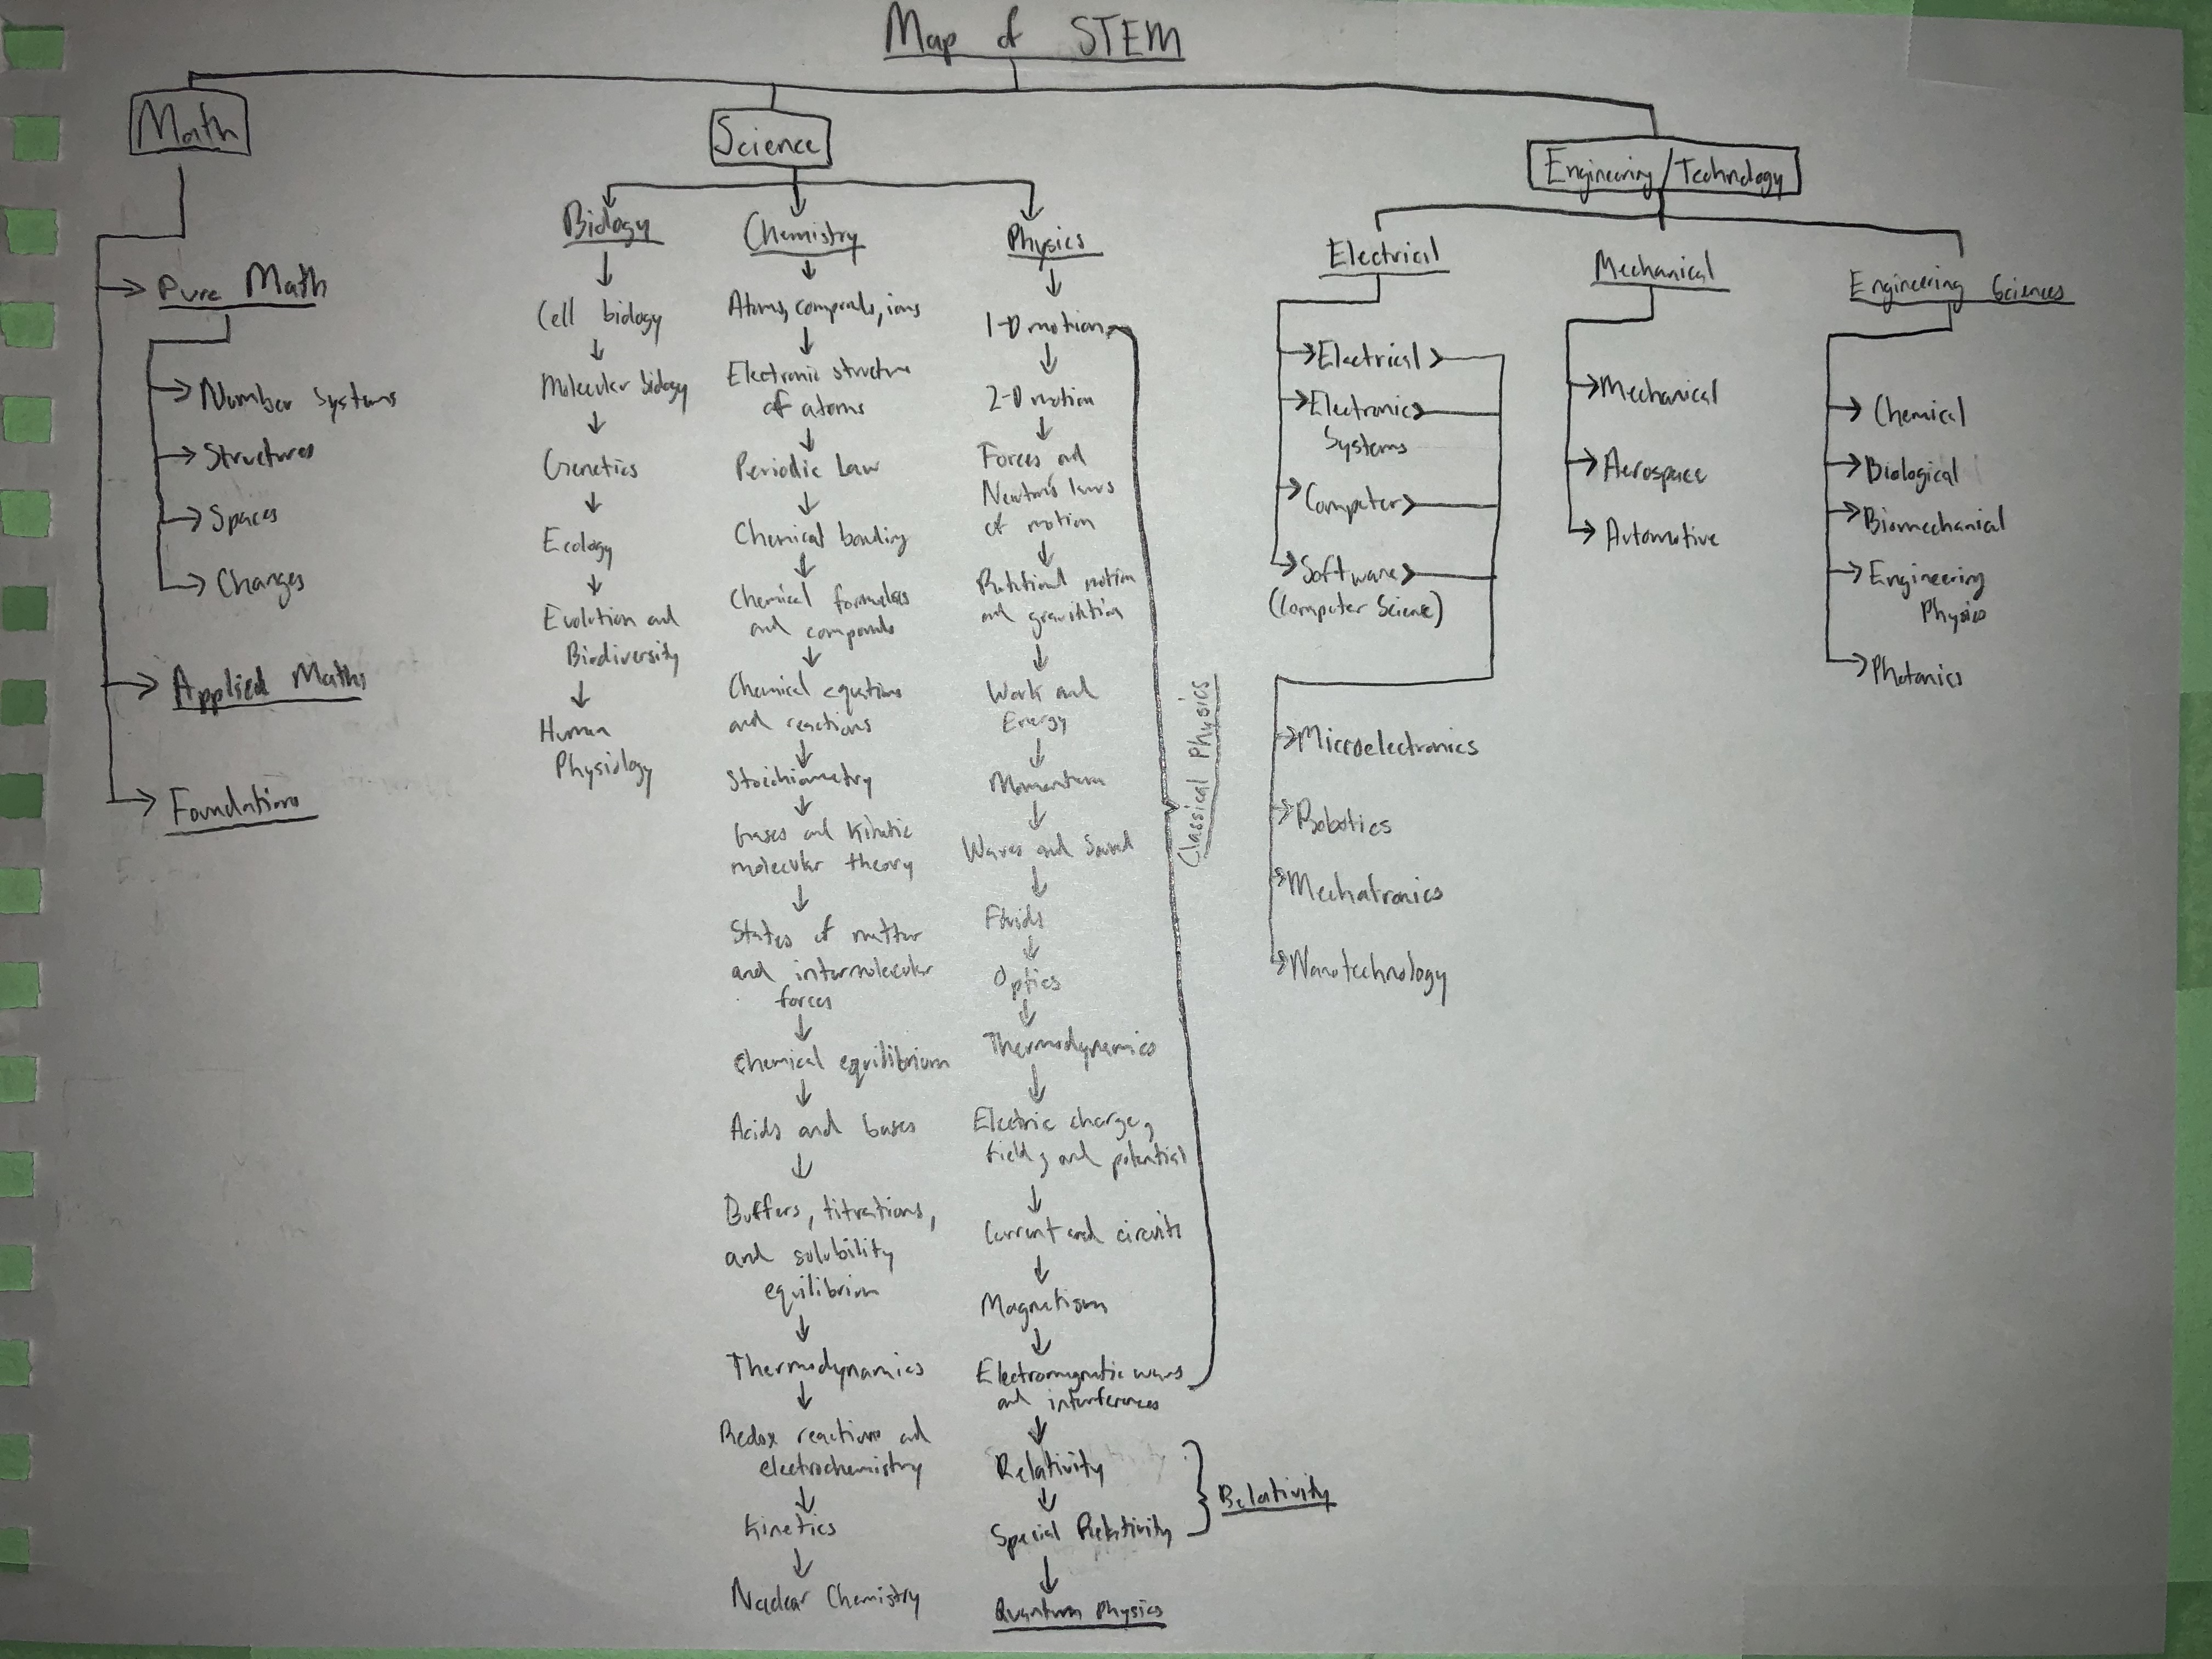 Map of STEM
Math
Pure Math
Number Systems
Structures
Spaces
Changes
Applied Maths
Foundations
Science
Biology
Cell biology
Molecular biology
Genetics
Ecology
Evolution and
Biodiversity
Human
Physiology
Chemistry
Atoms, compounds, ions
Electronic structure
of atoms
Periodic Law
Chemical bonding
Chemical formulas
and compounds
Chemical equations
and reactions
Stoichiometry
Gases and Kinetic
molecular theory
States of matter
and intermolecular
forces
Chemical equilibrium
Acids and bases
Buffers, titrations,
and solubility
equilibrium
Thermodynamics
Redox reactions and
electrochemistry
Kinetics
Nuclear Chemistry
Physics
1-D motion
2-D motion
Forces and
Newton's laws
of motion
Rotational motion
and gravitation
Work and
Energy
Momentum
Waves and Sound
Fluids
Optics
Thermodynamics
Electric charge,
field, and potential
Current and circuits
Magnetism
Electromagnetic waves
and interferences
Classical Physics
Relativity
Special Relativity
Relativity
Quantum Physics
Engineering/Technology
Electrical
Electrical
Electronic
Systems
Computer
Software
(Computer Science)
Microelectronics
Robotics
Mechatronics
Nanotechnology
Mechanical
Mechanical
Aerospace
Automotive
Engineering Sciences
Chemical
Biological
Biomechanical
Engineering
Physics
Photonics